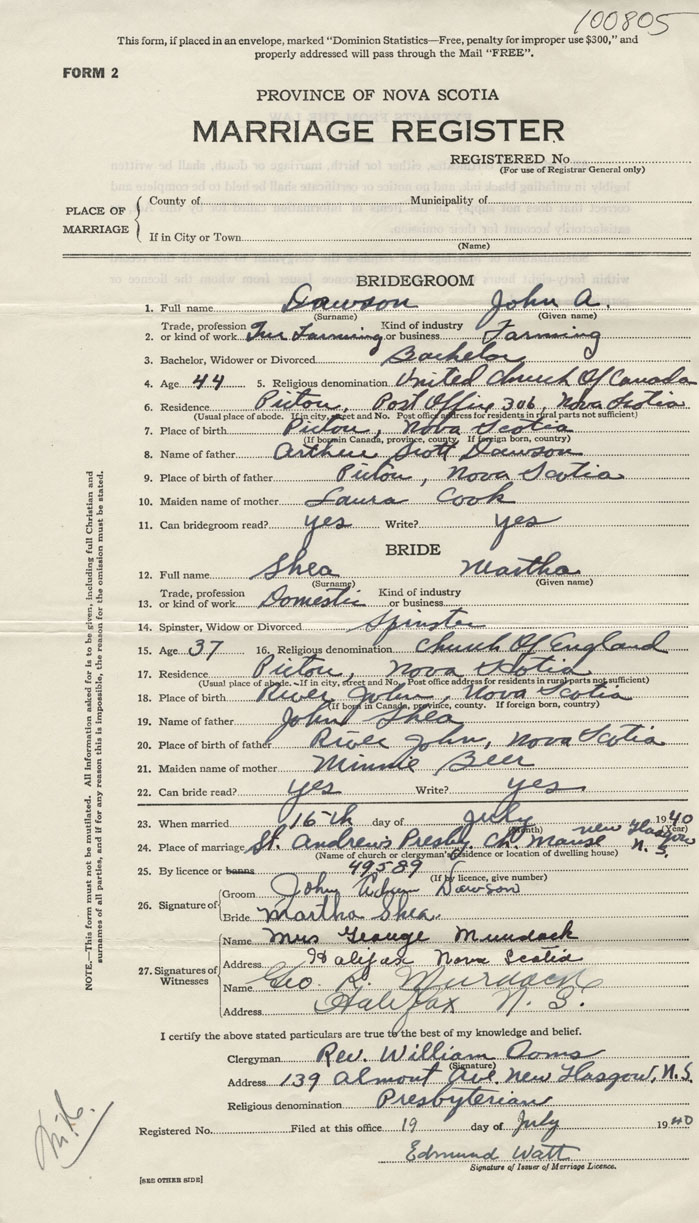 100805
This form, if placed in an envelope, marked "Dominion Statistics—Free, penalty for improper use $300," and
properly addressed will pass through the Mail "FREE".
FORM 2
PROVINCE OF NOVA SCOTIA
MARRIAGE REGISTER
REGISTERED No
(For use of Registrar General only)
PLACE OF MARRIAGE
County of Municipality of
If in City or Town
(Name)
BRIDEGROOM
1. Full name Dawson John A.
(Surname) (Given name)
Trade, profession Kind of industry
2. or kind of work Fur Farming or business Farming
3. Bachelor, Widower or Divorced Bachelor
4. Age 44 5. Religious denomination United Church Of Canada
6. Residence Pictou, Post Office 306, Nova Scotia
(Usual place of abode. If in city, street and No. Post office address for residents in rural parts not sufficient)
7. Place of birth Pictou, Nova Scotia
(If born in Canada, province, county. If foreign born, country)
8. Name of father Arthur Scott Dawson
9. Place of birth of father Pictou, Nova Scotia
10. Maiden name of mother Laura Cook
11. Can bridegroom read? yes Write? yes
BRIDE
12. Full name Shea Martha
(Surname) (Given name)
Trade, profession Kind of industry
13. or kind of work Domestic or business
14. Spinster, Widow or Divorced Spinster
15. Age 37 16. Religious denomination Church Of England
17. Residence Pictou, Nova Scotia
(Usual place of abode. If in city, street and No. Post office address for residents in rural parts not sufficient)
18. Place of birth River John, Nova Scotia
(If born in Canada, province, county. If foreign born, country)
19. Name of father John Shea
20. Place of birth of father River John, Nova Scotia
21. Maiden name of mother Minnie Beer
22. Can bride read? yes Write? yes
23. When married 16th day of July 1940
(Month) (Year)
24. Place of marriage St. Andrew's Presby. Ch. Manse New Glasgow N. S.
(Name of church or clergyman's residence or location of dwelling house)
25. By licence or banns 49589
(If by licence, give number)
26. Signature of
Groom John Dawson
Bride Martha Shea
27. Signatures of Witnesses
Name Mrs George Murdock
Address Halifax Nova Scotia
Name Geo. R. Murdock
Address Halifax N. S.
I certify the above stated particulars are true to the best of my knowledge and belief.
Clergyman Rev. William Ooms
(Signature)
Address 139 Almont Ave. New Glasgow, N.S.
Religious denomination Presbyterian
Registered No. Filed at this office 19 day of July 1940
Edmund Watt
Signature of Issuer of Marriage Licence.
[SEE OTHER SIDE]
NOTE.—This form must not be mutilated. All information asked for is to be given, including full Christian and
surnames of all parties, and if for any reason this is impossible, the reason for the omission must be stated.